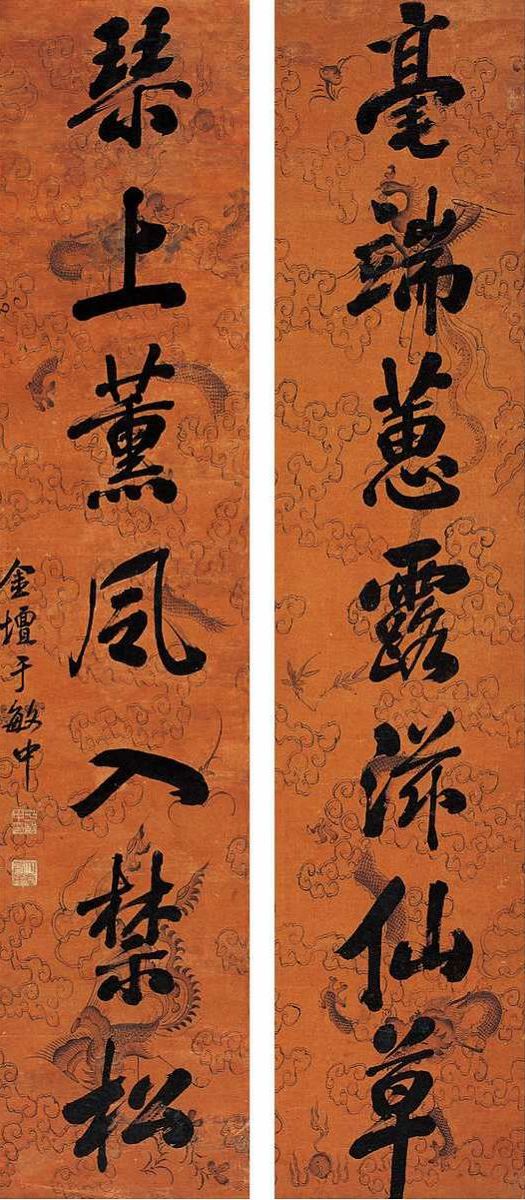 毫端蕙露滋仙草
琴上薰风入禁松
金壇于敏中